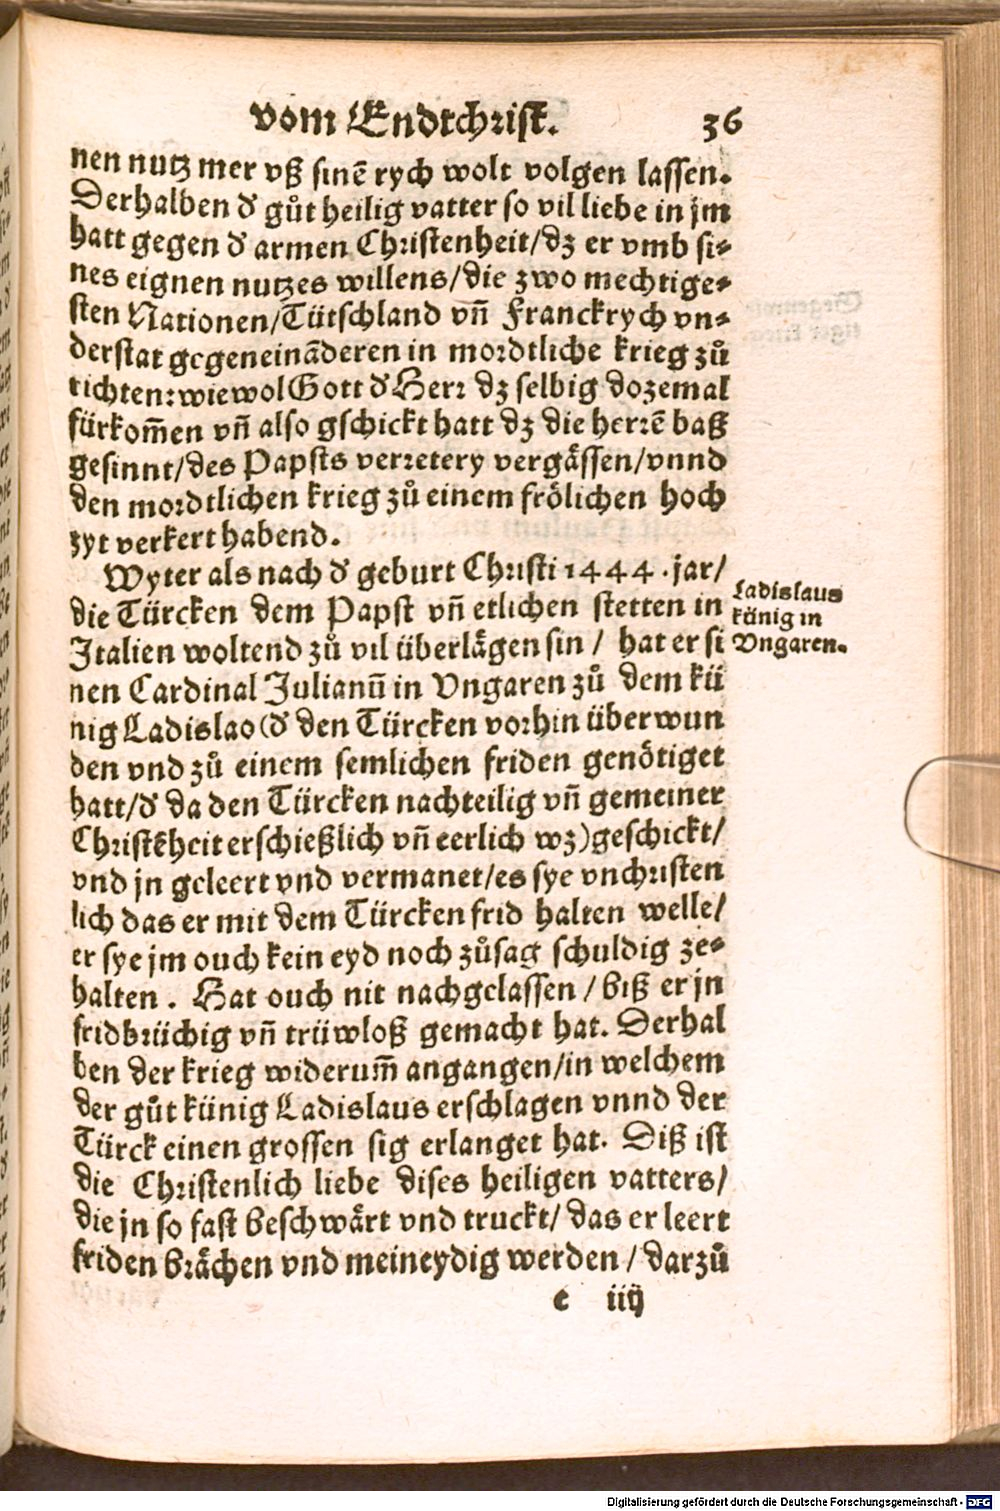 vom Endtchrist. 36
nen nutz mer vß sinẽ rych wolt volgen lassen.
Derhalben ď gůt heilig vatter so vil liebe in jm
hatt gegen ď armen Christenheit/dz er vmb si⸗
nes eignen nutzes willens/die zwo mechtige⸗
sten Nationen/Tütschland vñ Franckrych vn⸗
derstat gegeneinãderen in mordtliche krieg zů
richten: wiewol Gott ď Herr dz selbig dozemal
fürkom̃en vñ also gschickt hatt dz die herrẽ baß
gesinnt/des Papsts verretery vergässen/vnnd
den mordtlichen krieg zů einem frölichen hoch
zyt verkert habend.
Wyter als nach ď geburt Christi 1444. jar/
die Türcken dem Papst vñ etlichen stetten in
Italien woltend zů vil überlägen sin / hat er si
nen Cardinal Julianũ in Vngaren zů dem kü
nig Ladislao (ď den Türcken vorhin überwun
den vnd zů einem semlichen friden genötiget
hatt/ď da den Türcken nachteilig vñ gemeiner
Christẽheit erschießlich vñ eerlich wz) geschickt/
vnd jn geleert vnd vermanet/es sye vnchristen
lich das er mit dem Türcken frid halten welle/
er sye jm ouch kein eyd noch zůsag schuldig ze⸗
halten. Hat ouch nit nachgelassen / biß er jn
fridbrüchig vñ trüwloß gemacht hat. Derhal
ben der krieg widerum̃ angangen/in welchem
der gůt künig Ladislaus erschlagen vnnd der
Türck einen grossen sig erlanget hat. Diß ist
die Christenlich liebe dises heiligen vatters/
die jn so fast beschwärt vnd truckt/ das er leert
friden brächen vnd meineydig werden / darzů
e iiij
Ladislaus
künig in
Vngaren.
Digitalisierung gefördert durch die Deutsche Forschungsgemeinschaft - DFG